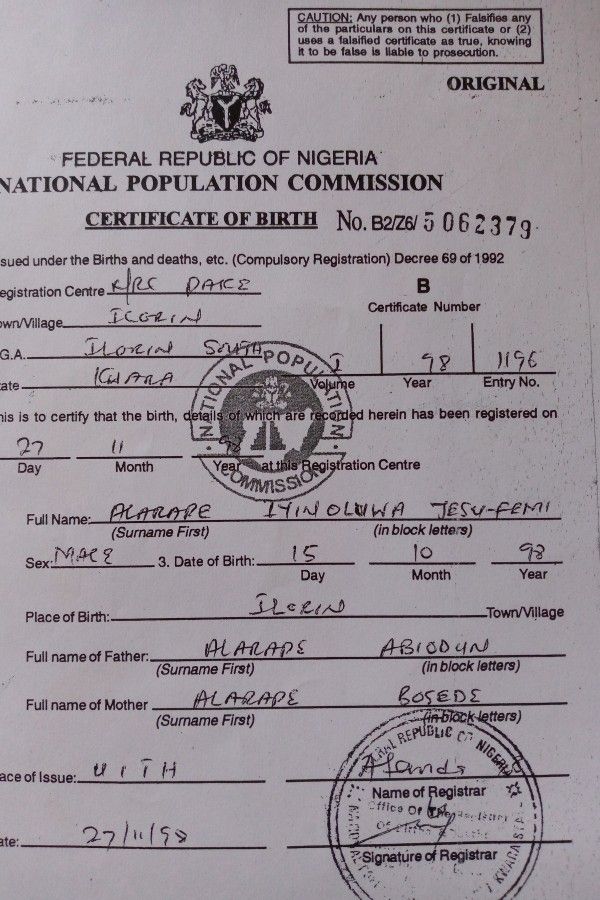 CAUTION: Any person who (1) Falsifies any
of the particulars on this certificate or (2)
uses a falsified certificate as true, knowing
it to be false is liable to prosecution.
ORIGINAL
FEDERAL REPUBLIC OF NIGERIA
NATIONAL POPULATION COMMISSION
CERTIFICATE OF BIRTH No. B2/Z6/ 5062379
sued under the Births and deaths, etc. (Compulsory Registration) Decree 69 of 1992
egistration Centre
B
Certificate Number
own/Village ILORIN
G.A. ILORIN SOUTH
I 98 1196
tate KWARA
Volume Year Entry No.
NATIONAL POPULATION COMMISSION
his is to certify that the birth, details of which are recorded herein has been registered on
27 11 98
Day Month Year at this Registration Centre
Full Name: ALARAPE IYINOLUWA JESU-FEMI
(Surname First) (in block letters)
Sex: MALE 3. Date of Birth: 15 10 98
Day Month Year
Place of Birth: ILORIN Town/Village
Full name of Father: ALARAPE ABIODUN
(Surname First) (in block letters)
Full name of Mother ALARAPE BOSEDE
(Surname First) (in block letters)
REPUBLIC OF NIGERIA
ace of Issue: UITH
Name of Registrar
Office Of The
ate: 27/11/98
Signature of Registrar
KWARA STATE